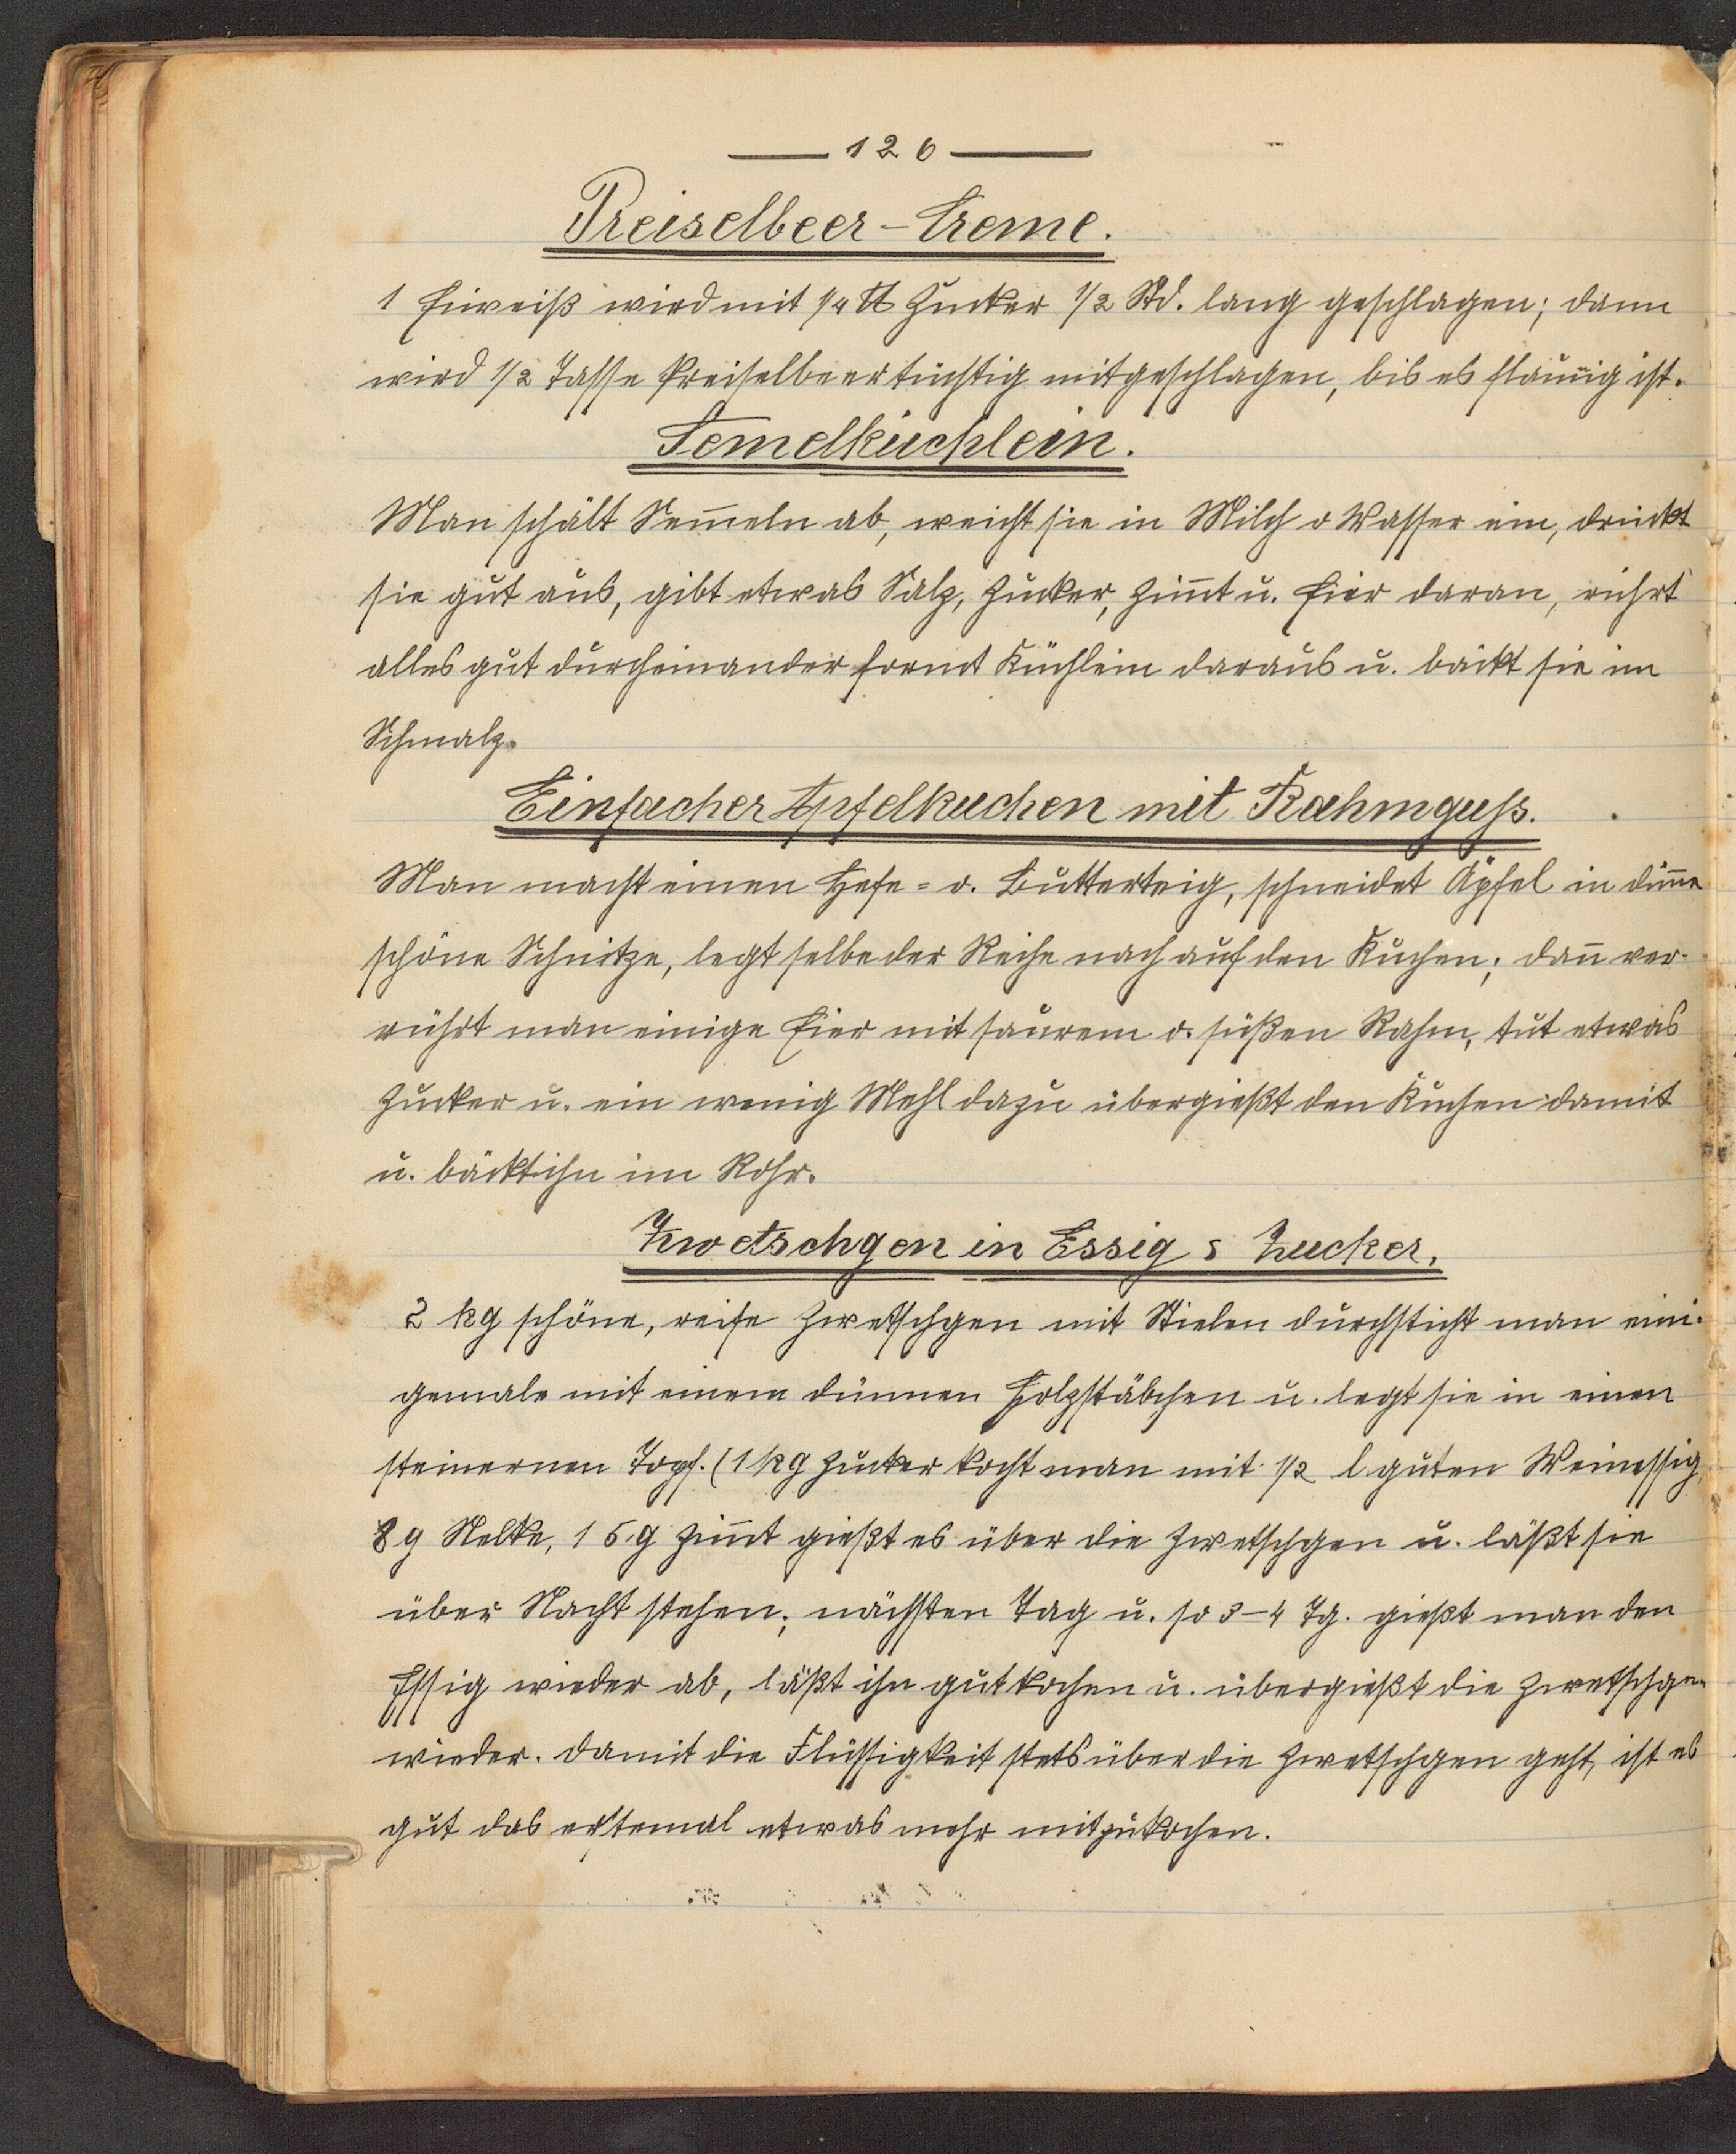 — 126 —
Preiselbeer-Creme.
1 Eiweiß wird mit 1/4 ℔ Zucker 1/2 Std. lang geschlagen; dann
wird 1/2 Tasse Preiselbeer tüchtig mitgeschlagen, bis es flaumig ist.
Semelküchlein.
Man schält Sem̅eln ab, weicht sie in Milch o Wasser ein, drückt
sie gut aus, gibt etwas Salz, Zucker, Zim̅t u. Eier daran, rührt
alles gut durcheinander formt Küchlein daraus u. bäckt sie im
Schmalz.
Einfacher Apfelkuchen mit Rahmguss.
Man macht einen Hefe- o. Butterteig, schneidet Äpfel in dün̅e
schöne Schnitze, legt selbe der Reihe nach auf den Kuchen; dan̅ ver-
rührt man einige Eier mit saurem o. süßen Rahm, tut etwas
Zucker u. ein wenig Mehl dazu übergießt den Kuchen damit
u. bäckt ihn im Rohr.
Zwetschgen in Essig & Zucker.
2 kg schöne, reife Zwetschgen mit Stielen durchsticht man eini-
gemale mit einem dünnen Holzstäbchen u. legt sie in einen
steinernen Topf. (1 kg Zucker kocht man mit 1/2 l guten Weinessig,
8 g Nelke, 15 g Zim̅t gießt es über die Zwetschgen u. läßt sie
über Nacht stehen; nächsten Tag u. so 3-4 Tg. gießt man den
Essig wieder ab, läßt ihn gut kochen u. übergießt die Zwetschgen
wieder. Damit die Flüssigkeit stets über die Zwetschgen geht, ist es
gut das erstemal etwas mehr mitzukochen.